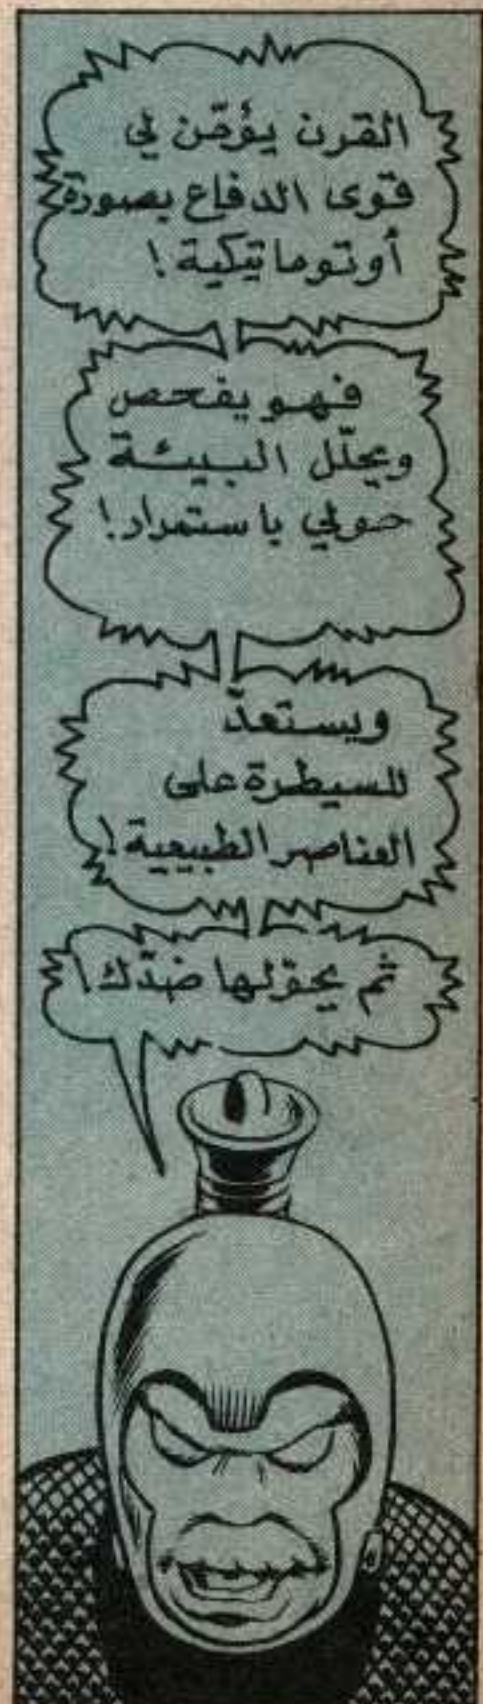 القرن يؤمّن لي
قوى الدفاع بصورة
أوتوماتيكية !
فهو يفحص
ويحلّل البيئة
حولي باستمرار !
ويستعدّ
للسيطرة على
العناصر الطبيعية !
ثم يحوّلها ضدّك !